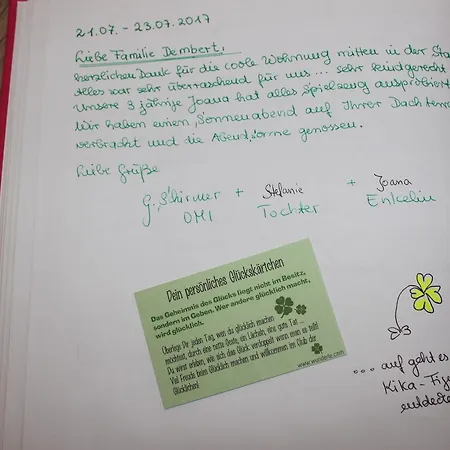 21.07. - 23.07.2017
Liebe Familie Dembert,
herzlichen Dank für die coole Wohnung mitten in der Sta
Alles war sehr überraschend für uns ... sehr kindgerecht
Unsere 3 jährige Joana hat alles Spielzeug ausprobiert
Wir haben einen Sonnenabend auf Ihrer Dachterra
verbracht und die Abendsonne genossen.
Liebe Grüße
G. Schirmer + Stefanie + Joana
OMI Tochter Enkelin
Dein persönliches Glückskärtchen
Das Geheimnis des Glücks liegt nicht im Besitz,
sondern im Geben. Wer andere glücklich macht,
wird glücklich.
Überlege Dir jeden Tag, wen du glücklich machen
möchtest, durch eine nette Geste, ein Lächeln, eine gute Tat ...
Du wirst erleben, wie sich das Glück verdoppelt wenn man es teilt!
Viel Freude beim Glücklich machen und willkommen im Club der
Glücklichen!
www.wunderle.com
... auf geht es
Kika-Tige
entdecke